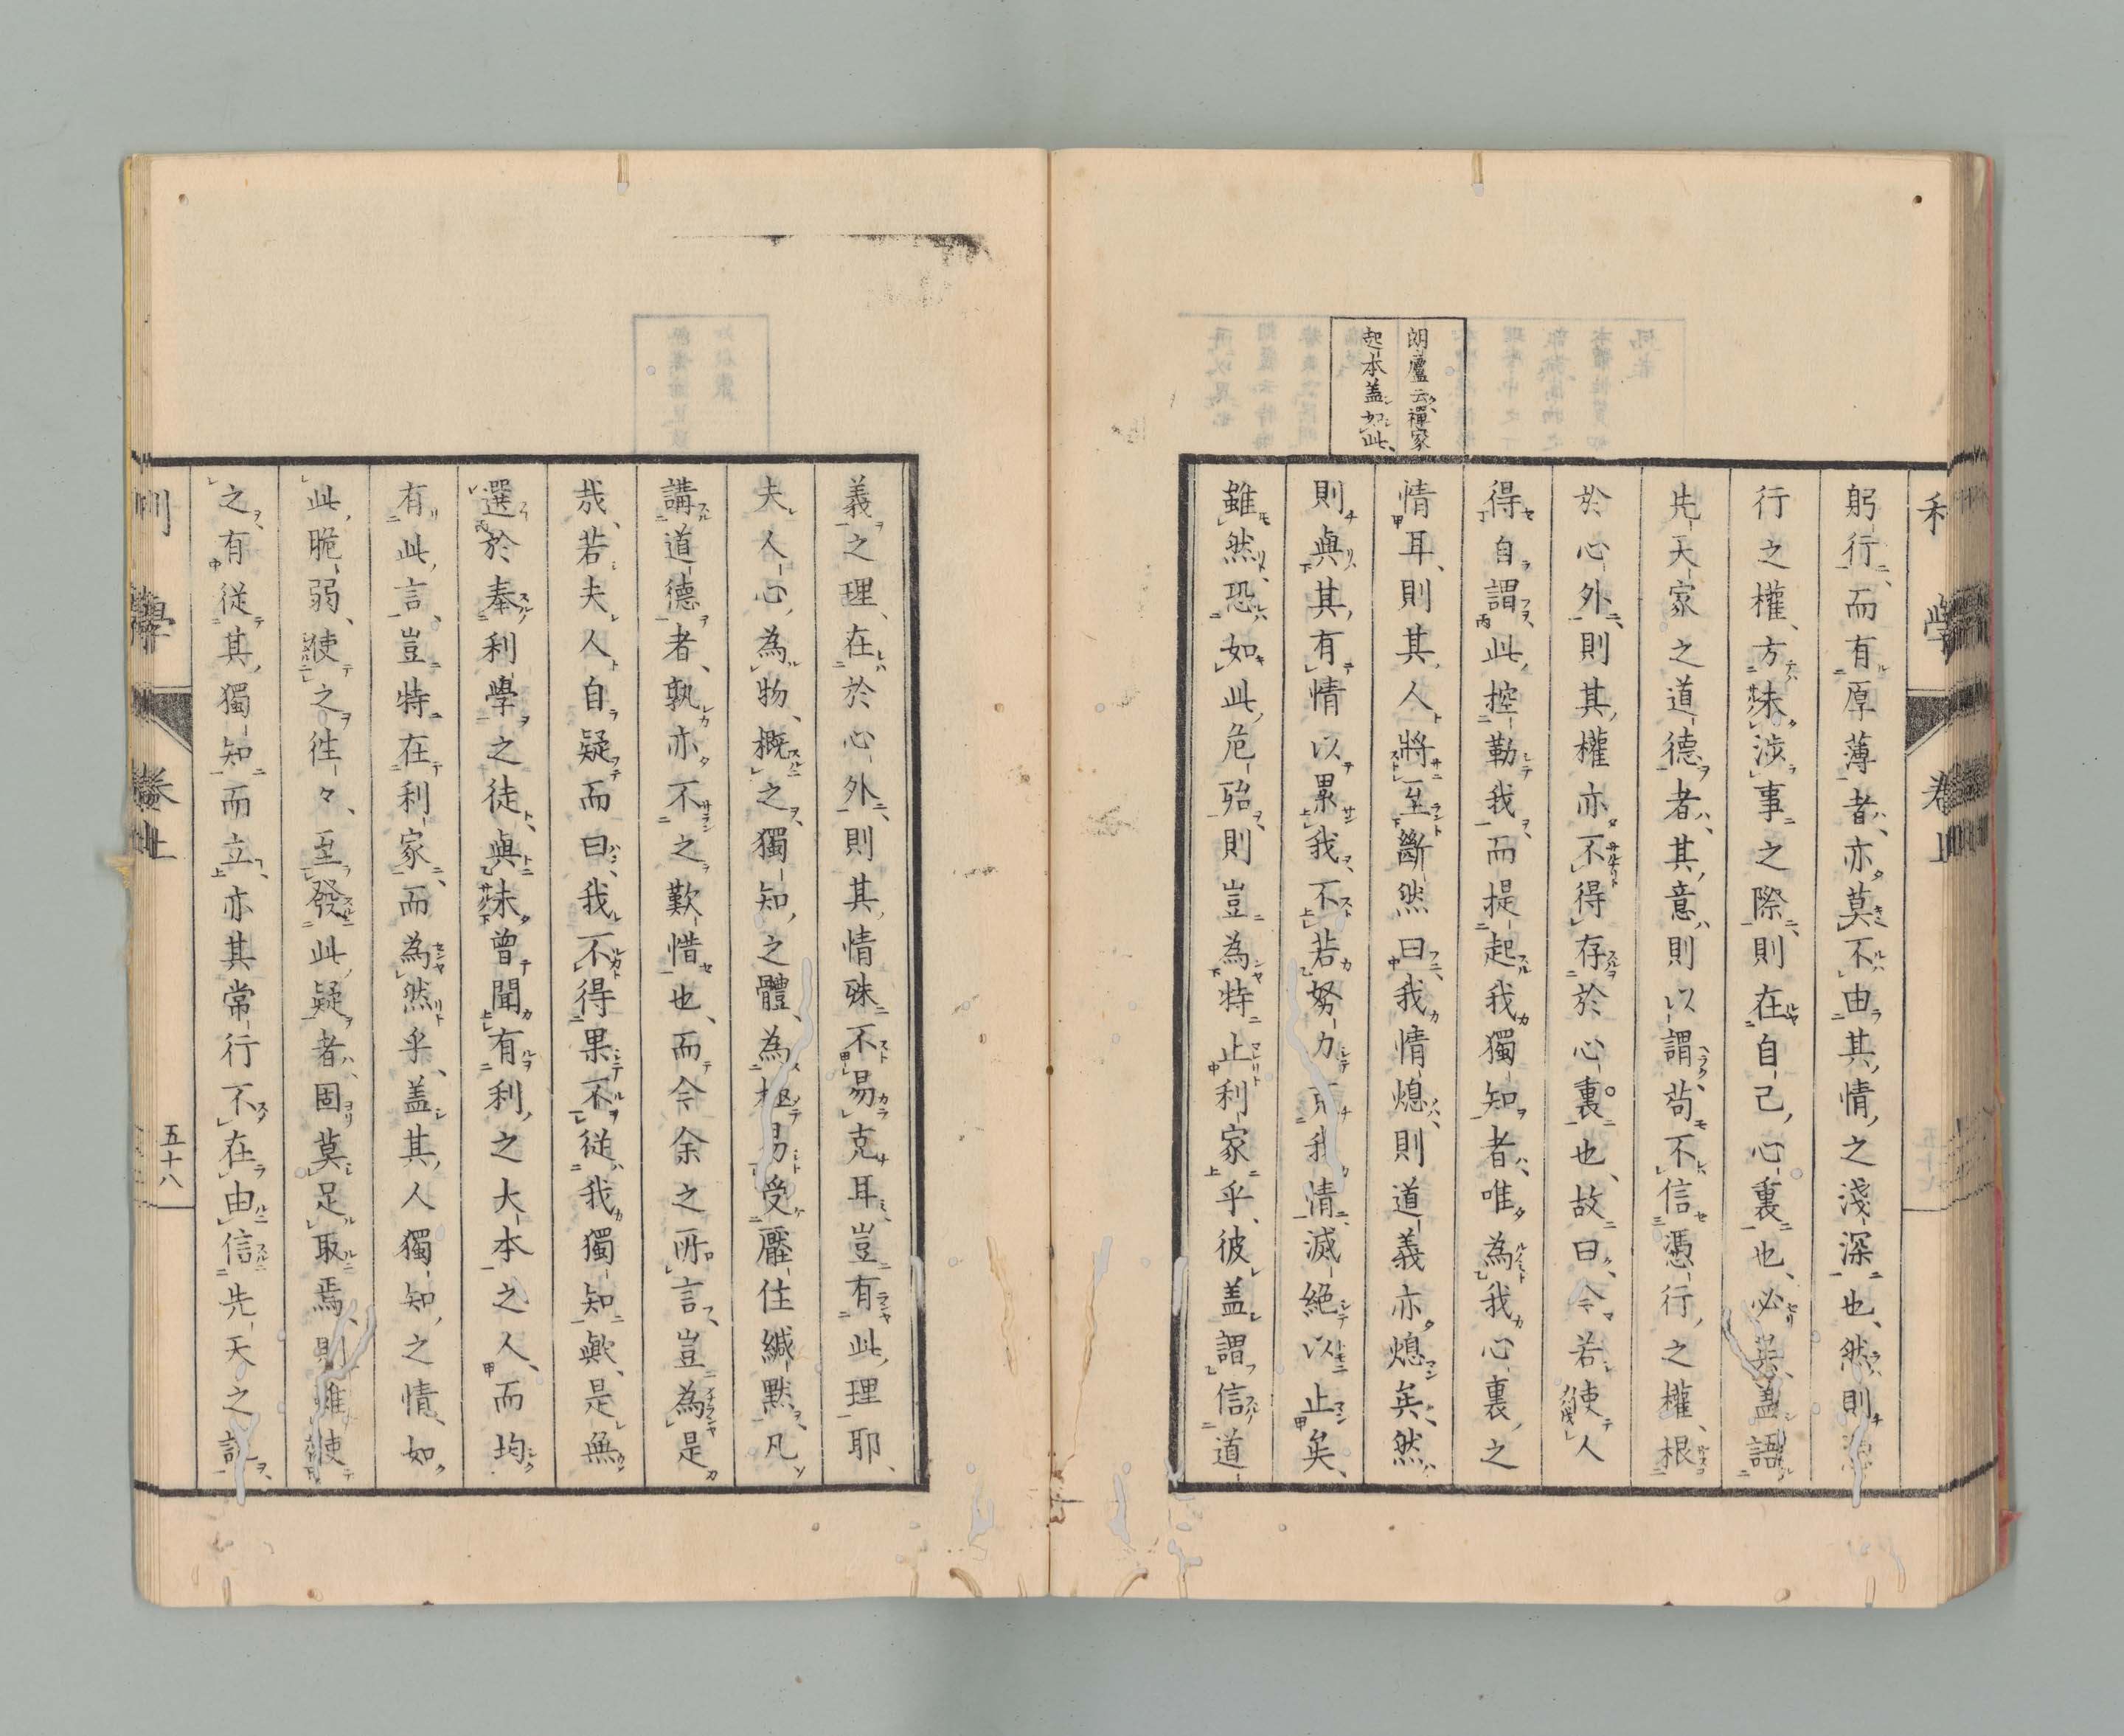 朗廬云禪家
起本蓋如此
躬行而有厚薄者亦莫不由其情之淺深也然則
行之權方未涉事之際則在自己心裏也必矣蓋語
先天家之道德者其意則以謂苟不信憑行之權根
於心外則其權亦不得存於心裏也故曰今若使人
得自謂此控勒我而提起我獨知者唯為我心裏之
情耳則其人將至斷然曰我情熄則道義亦熄矣然
則與其有情以累我不若努力 我情滅絕以止矣
雖然恐如此危殆則豈為特止利家乎彼蓋謂信道
義之理在於心外則其情殊不易克耳豈有此理耶
夫人心為物概之獨知之體為極易受壓住緘默凡
講道德者孰亦不之歎惜也而今余之所言豈為是
哉若夫人自疑而曰我不得果不從我獨知歟是無
選於奉利學之徒與未曾聞有利之大本之人而均
有此言豈特在利家而為然乎蓋其人獨知之情如
此脆弱使之往々至發此疑者固莫足取焉則雖使
之有從其獨知而立亦其常行不在由信先天之
利學
卷上
五十八